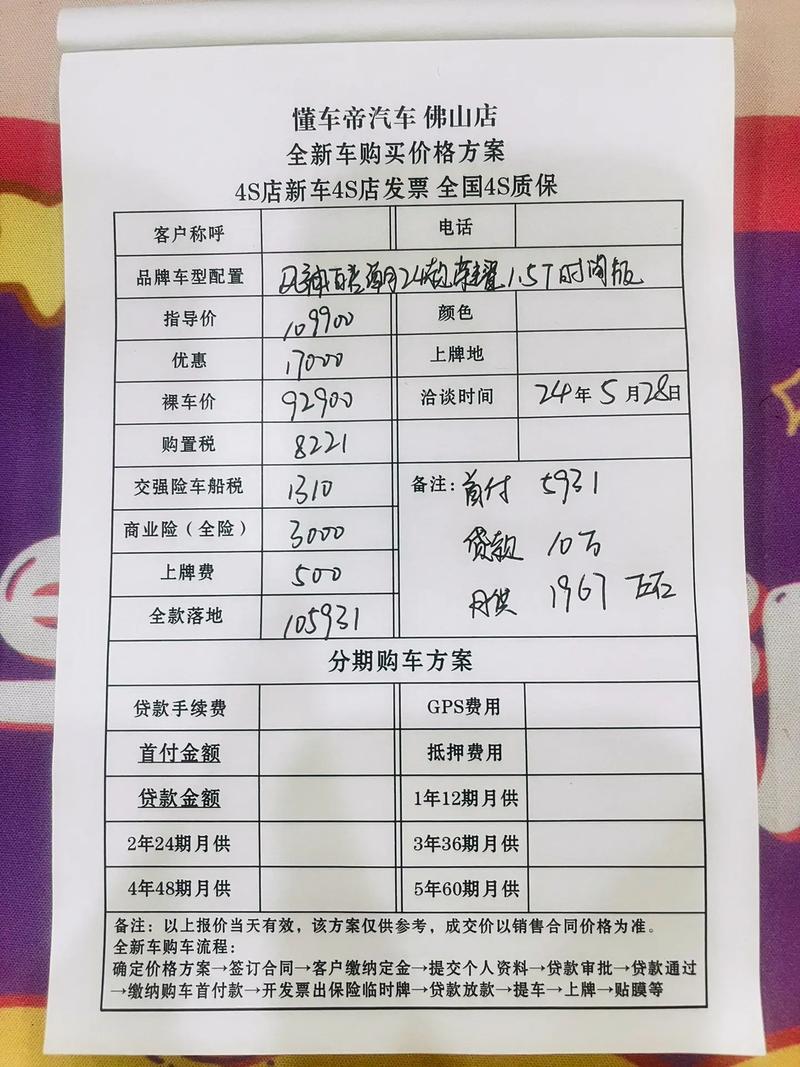 懂车帝汽车 佛山店
全新车购买价格方案
4S店新车4S店发票 全国4S质保
客户称呼 电话
品牌车型配置 风神皓瀚24款荣耀1.5T时尚版
指导价 109900 颜色
优惠 17000 上牌地
裸车价 92900 洽谈时间 24年5月28日
购置税 8221
交强险车船税 1310 备注：首付 5931
商业险（全险） 3000 贷款 10万
上牌费 500 月供 1967 左右
全款落地 105931
分期购车方案
贷款手续费 GPS费用
首付金额 抵押费用
贷款金额 1年12期月供
2年24期月供 3年36期月供
4年48期月供 5年60期月供
备注：以上报价当天有效，该方案仅供参考，成交价以销售合同价格为准。
全新车购车流程：
确定价格方案→签订合同→客户缴纳定金→提交个人资料→贷款审批→贷款通过
→缴纳购车首付款→开发票出保险临时牌→贷款放款→提车→上牌→贴膜等